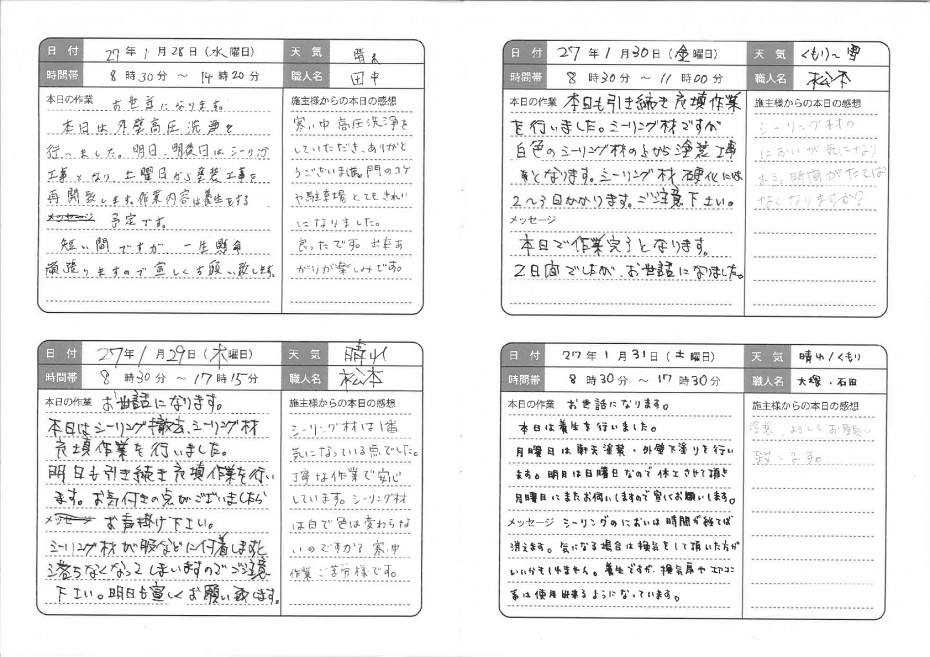 日付 27年1月28日(水曜日) 天気 晴れ
時間帯 8時30分～14時20分 職人名 田中
本日の作業 お世話になります。
本日は外壁高圧洗浄を
行いました。明日、明後日はシーリング
工事となり、土曜日から塗装工事を
再開致します。作業内容は養生をする
メッセージ 予定です。
短い間ですが、一生懸命
頑張りますので宜しくお願い致します。
施主様からの本日の感想
寒い中高圧洗浄を
していただき、ありがと
うございます。門のコケ
や駐車場とてもきれい
になりました。
良ったです。出来あ
がりが楽しみです。
日付 27年1月29日(木曜日) 天気 晴れ
時間帯 8時30分～17時15分 職人名 松本
本日の作業 お世話になります。
本日はシーリング撤去、シーリング材
充填作業を行いました。
明日も引き続き充填作業を行い
ます。お気付きの点がございましたら
メッセージ お声掛け下さい。
シーリング材が服などに付着しますと
落ちなくなってしまいますのでご注意
下さい。明日も宜しくお願い致します。
施主様からの本日の感想
シーリング材は1番
気になっている点でした。
丁寧な作業で安心
しています。シーリング材
は白で色は変わらな
いのですか？寒い中
作業ご苦労様です。
日付 27年1月30日(金曜日) 天気 くもり～雪
時間帯 8時30分～11時00分 職人名 松本
本日の作業 本日も引き続き充填作業
を行いました。シーリング材ですが
白色のシーリング材の上から塗装工事
となります。シーリング材硬化には
2～3日かかります。ご注意下さい。
メッセージ
本日で作業完了となります。
2日間でしたが、お世話になりました。
施主様からの本日の感想
シーリング材の
においが気になり
ます。時間がたてば
なくなりますか？
日付 27年1月31日(土曜日) 天気 晴れ/くもり
時間帯 8時30分～17時30分 職人名 大塚・石田
本日の作業 お世話になります。
本日は養生を行いました。
月曜日は軒天塗装・外壁下塗りを行い
ます。明日は日曜日なので休工させて頂き
月曜日にまたお伺いしますので宜しくお願いします。
メッセージ シーリングのにおいは時間が経てば
消えます。気になる場合は換気をして頂いた方が
いいかもしれません。養生ですが、換気扇やエアコン
等は使用出来るようになっています。
施主様からの本日の感想
塗装、よろしくお願い
致します。